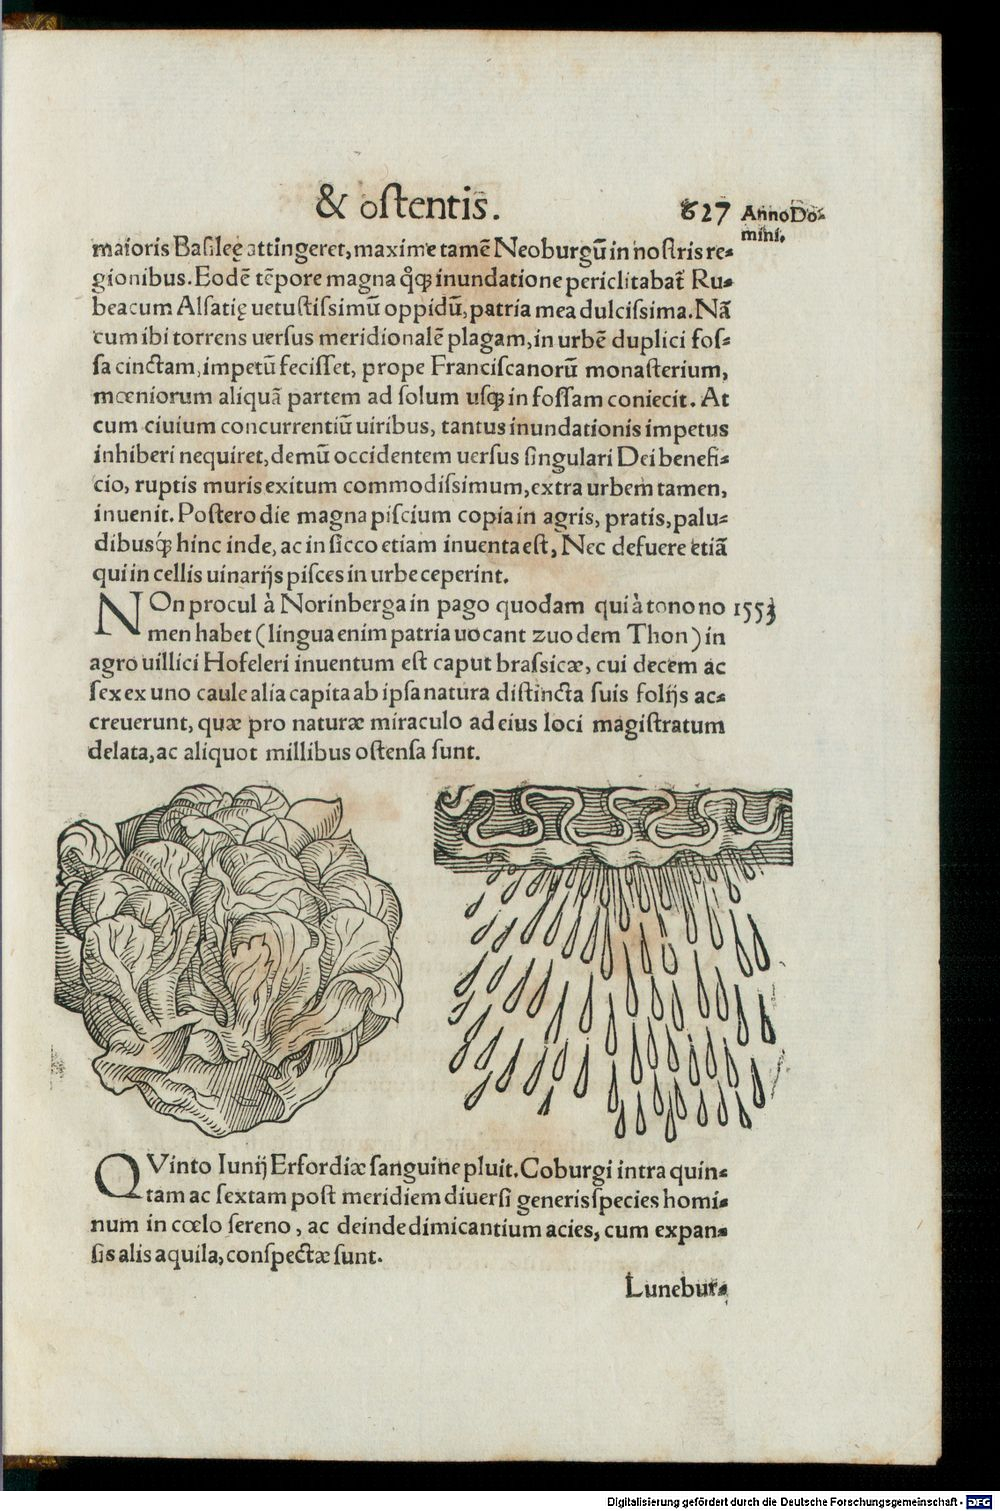 & ostentis. 627 Anno Do-
mini.
maioris Basileę attingeret, maxime tamē Neoburgū in nostris re-
gionibus. Eodē tēpore magna q̊q; inundatione periclitabat᷑ Ru-
beacum Alsatię uetustissimū oppidū, patria mea dulcissima. Nā
cum ibi torrens uersus meridionalē plagam, in urbē duplici fos-
sa cinctam, impetū fecisset, prope Franciscanorū monasterium,
mœniorum aliquā partem ad solum usq; in fossam coniecit. At
cum ciuium concurrentiū uiribus, tantus inundationis impetus
inhiberi nequiret, demū occidentem uersus singulari Dei benefi-
cio, ruptis muris exitum commodissimum, extra urbem tamen,
inuenit. Postero die magna piscium copia in agris, pratis, palu-
dibusq́; hinc inde, ac in sicco etiam inuenta est, Nec defuere etiā
qui in cellis uinarijs pisces in urbe ceperint.
NOn procul à Norinberga in pago quodam qui à tono no 1553
men habet (lingua enim patria uocant zuo dem Thon) in
agro uillici Hofeleri inuentum est caput brassicæ, cui decem ac
sex ex uno caule alia capita ab ipsa natura distincta suis folijs ac-
creuerunt, quæ pro naturæ miraculo ad eius loci magistratum
delata, ac aliquot millibus ostensa sunt.
QVinto Iunij Erfordiæ sanguine pluit. Coburgi intra quin-
tam ac sextam post meridiem diuersi generis species homi-
num in cœlo sereno, ac deinde dimicantium acies, cum expan-
sis alis aquila, conspectæ sunt.
Lunebur-
Digitalisierung gefördert durch die Deutsche Forschungsgemeinschaft - DFG